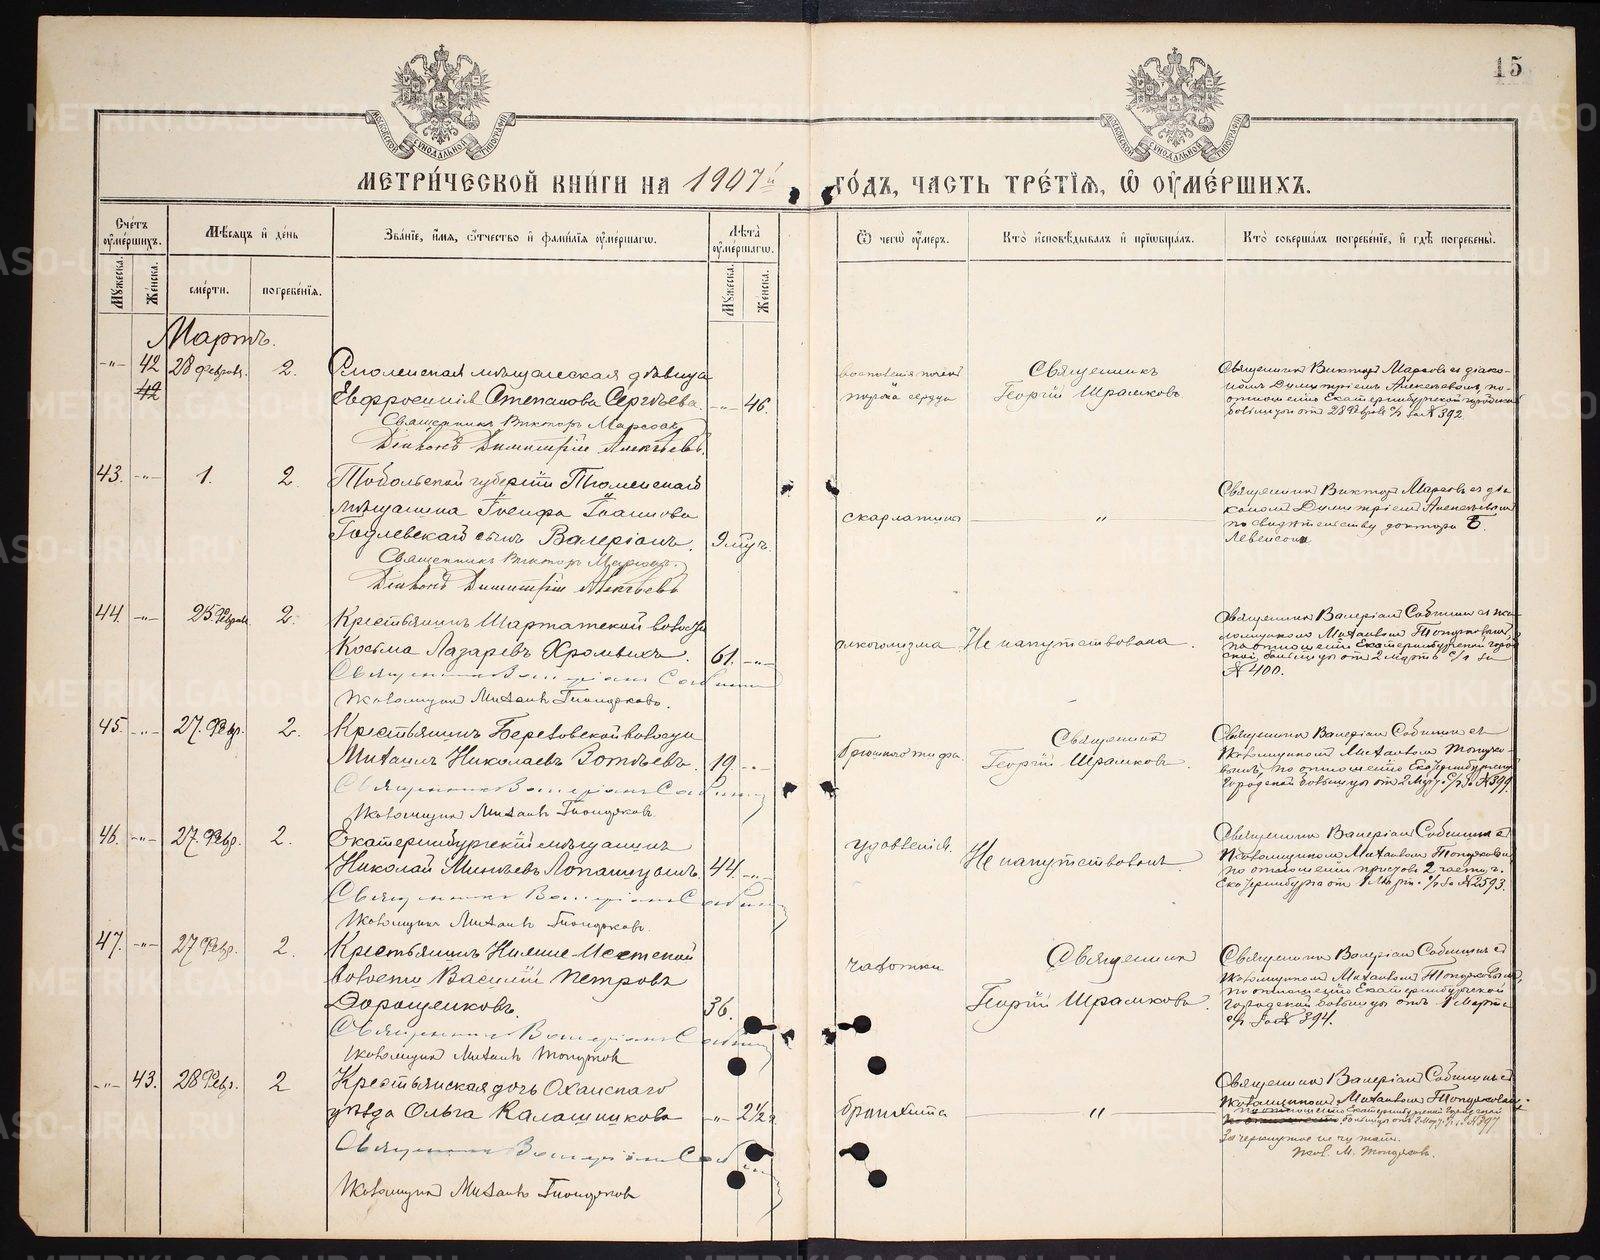 15
МЕТРИ́ЧЕСКОЙ КНИ́ГИ НА 1907й ГО́ДЪ, ЧАСТЬ ТРЕ́ТІѦ, Ѿ ОУ҆МЕ́РШИХЪ.
Сче́тъ оу҆ме́ршихъ.
Мꙋ́жеска.
Же́нска.
Мѣ́сѧцъ и҆ де́нь
сме́рти.
погребе́нїѧ.
Зва́нїе, и҆́мѧ, ѻ҆́тчество и҆ фамі́лїѧ оу҆ме́ршагѡ.
Лѣ́та оу҆ме́ршагѡ.
Мꙋ́жеска.
Же́нска.
Ѿ чегѡ̀ оу҆́меръ.
Кто̀ и҆сповѣ́дывалъ и҆ прїѡбща́лъ.
Кто̀ соверша́лъ погребе́нїе, и҆ гдѣ̀ погребены̀.
Мартъ.
-"- 42 28 Февраля. 2.
42
Смоленская мѣщанская дѣвица
Евфросинія Степанова Сергѣева. -"- 46.
Священникъ Викторъ
Діаконъ Димитрій Алексѣевъ.
порока сердца
Священникъ
Георгій Шрамковъ
Священник Виктор с діако-
ном Димитріем Алексѣевым, по
отношенію Екатеринбургской городской
больницы от 28 Февр. с/г за № 392.
43. -"- 1. 2.
Тобольской губерніи Тюменскаго
мѣщанина Іосифа Іоаннова
сынъ Валеріанъ. 9 мѣс.
Священникъ Викторъ
Діаконъ Димитрій Алексѣевъ
скарлатины
"
Священник Виктор с діа
коном Димитріем Алексѣевым
по свидѣтельству доктора
Левенсона
44. -"- 25 Февраля 2.
Крестьянинъ Шарташской волости
Косьма Лазаревъ Хромыхъ. 61. -"-
Священникъ Валеріанъ
Псаломщик Михаилъ
алкоголизма
Не напутствована
Священник Валеріан с пса-
ломщиком Михаилом
по отношенію Екатеринбургской город
ской больницы от 2 марта с/г за
№ 400.
45. -"- 27. Февр. 2.
Крестьянинъ Березовской волости
Михаилъ Николаевъ Зотѣевъ. 19 -"-
Священникъ Валеріанъ
Псаломщик Михаилъ
брюшного тифа
Священник
Георгій Шрамковъ
Священник Валеріан с
псаломщиком Михаилом
по отношенію Екатеринбургской
городской больницы от 2 Мар. с/г за № 399.
46. -"- 27. Февр. 2.
Екатеринбургскій мѣщанинъ
Николай 44. -"-
Священникъ Валеріанъ
Псаломщик Михаилъ
удавленія.
Не напутствованъ
Священник Валеріан с
Псаломщиком Михаилом
по отношенію пристава 2 части г.
Екатеринбурга от 1 Март. с/г за № 2593.
47. -"- 27 Февр. 2.
Крестьянинъ Нижне-Исетской
волости Василій Петровъ
Дорощенковъ. 36.
Священникъ Валеріанъ
Псаломщик Михаилъ
чахотки
Священник
Георгій Шрамковъ
Священник Валеріан с
псаломщиком Михаилом
по отношенію Екатеринбургской
городской больницы отъ 1 Марта
с/г. за № 394.
-"- 43. 28 Февр. 2
Крестьянская дочь Оханскаго
уѣзда Ольга Калашникова -"- 2½ г.
Священникъ Валеріанъ
Псаломщик Михаилъ
бронхита
"
Священник Валеріан с
псаломщиком Михаилом
по отношенію Екатеринбургской городской
больницы от 2 Мар. с/г за № 397
Зачеркнутое не читать.
Псал. М.